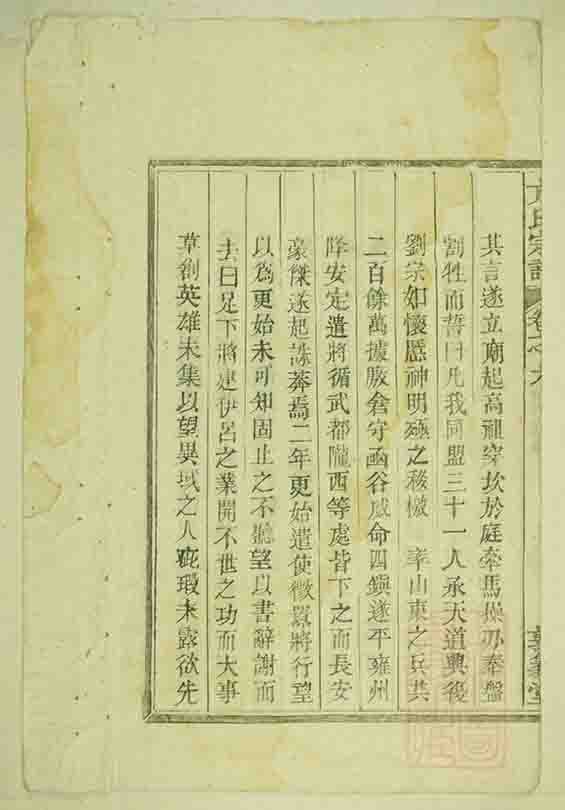 方氏宗譜 卷之九
敦彝堂
其言遂立廟起高祖穿坎於庭牽馬操刀奉盤
割牲而誓曰凡我同盟三十一人承天道興後
劉宗如懷慝神明殛之移檄 率山東之兵共
二百餘萬據敖倉守函谷威命四鎮遂平雍州
降安定遣將循武都隴西等處皆下之而長安
豪傑遂起誅莽焉二年更始遣使徵囂將行望
以爲更始未可知固止之不聽望以書辭謝而
去曰足下將建伊呂之業開不世之功而大事
草創英雄未集以望異域之人疵瑕未露欲先